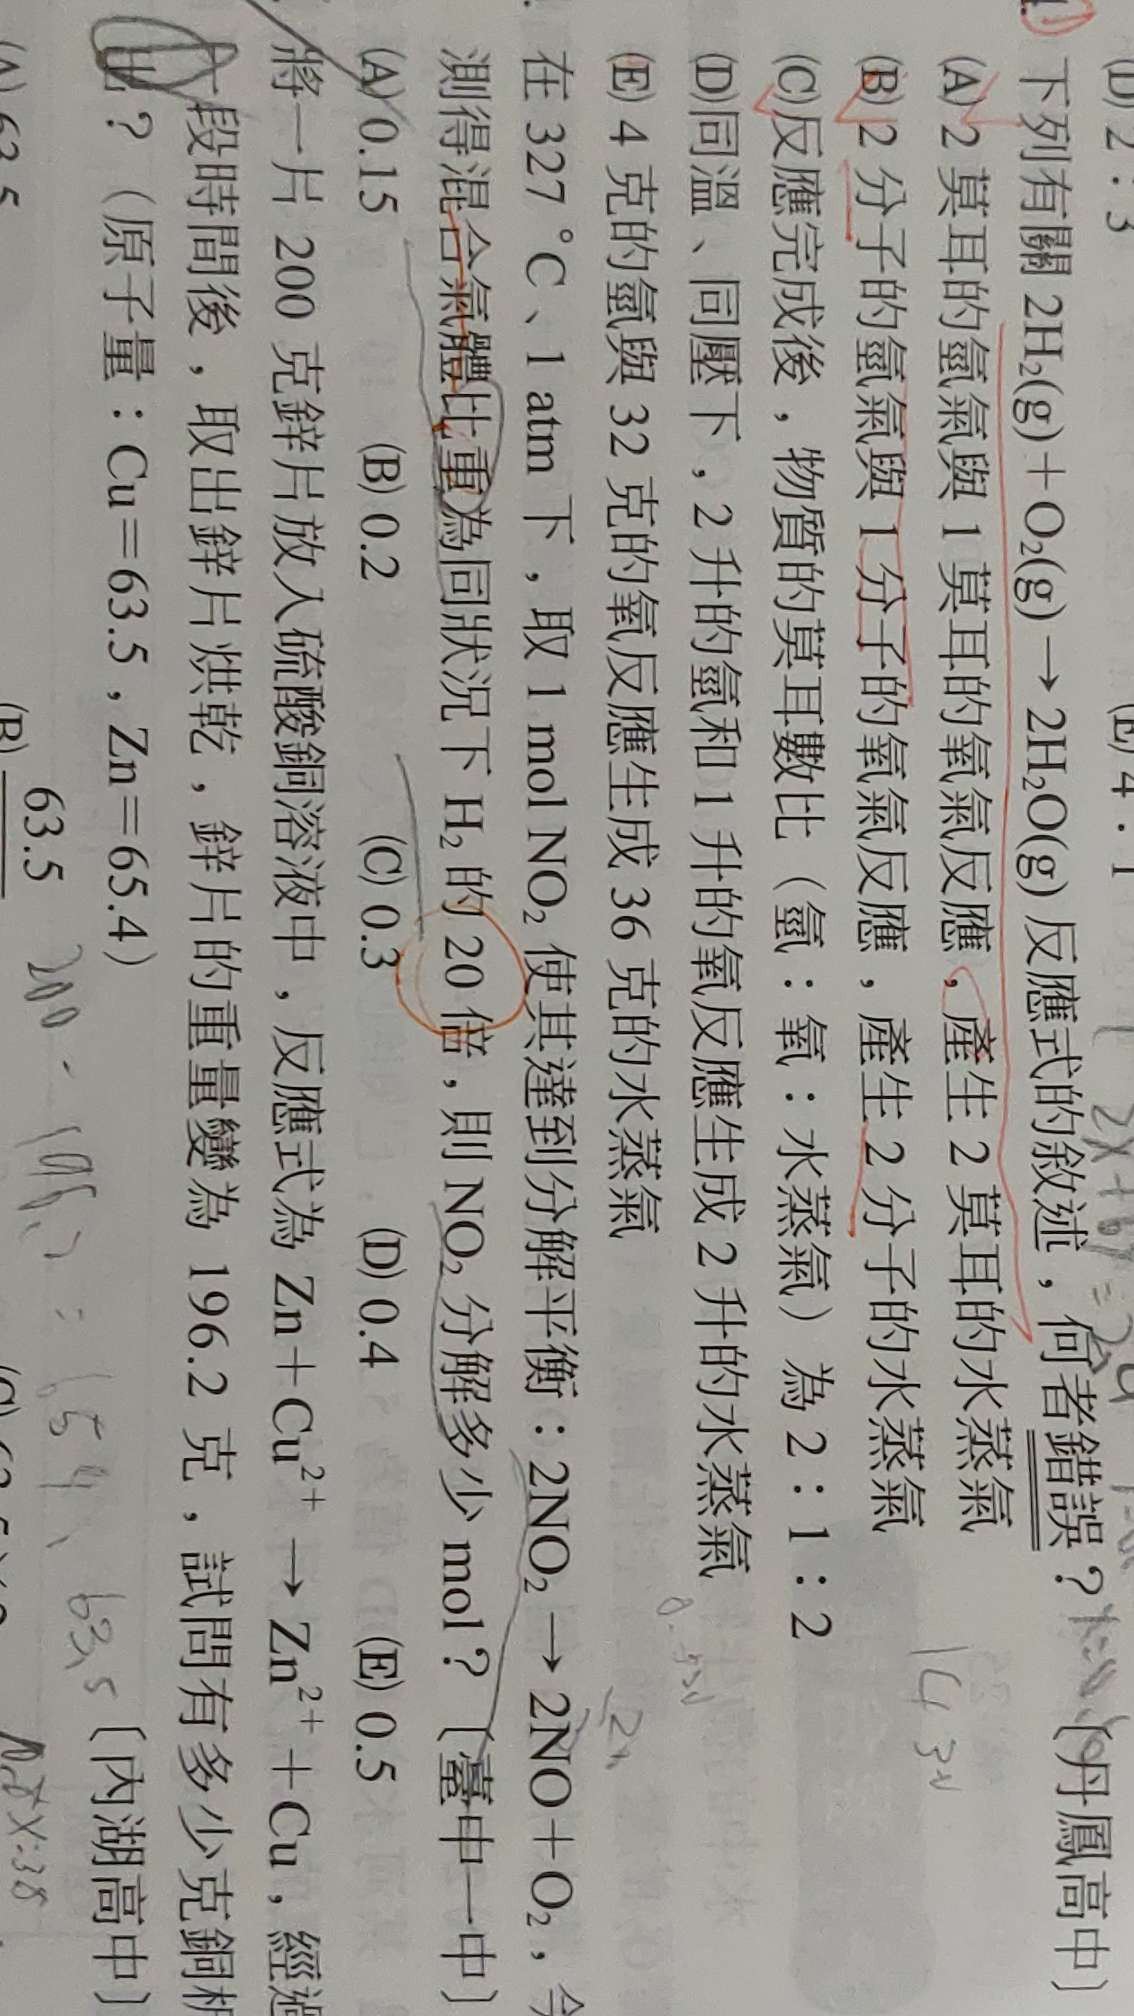 (D) 2：3 (E) 4：1
下列有關 2H₂(g)＋O₂(g)→2H₂O(g) 反應式的敘述，何者錯誤？〔丹鳳高中〕
(A) 2 莫耳的氫氣與 1 莫耳的氧氣反應，產生 2 莫耳的水蒸氣
(B) 2 分子的氫氣與 1 分子的氧氣反應，產生 2 分子的水蒸氣
(C)反應完成後，物質的莫耳數比（氫：氧：水蒸氣）為 2：1：2
(D)同溫、同壓下，2 升的氫和 1 升的氧反應生成 2 升的水蒸氣
(E) 4 克的氫與 32 克的氧反應生成 36 克的水蒸氣
在 327 °C、1 atm 下，取 1 mol NO₂ 使其達到分解平衡：2NO₂→2NO＋O₂，今
測得混合氣體比重為同狀況下 H₂ 的 20 倍，則 NO₂ 分解多少 mol？〔臺中一中〕
(A) 0.15 (B) 0.2 (C) 0.3 (D) 0.4 (E) 0.5
將一片 200 克鋅片放入硫酸銅溶液中，反應式為 Zn＋Cu²⁺→Zn²⁺＋Cu，經過
段時間後，取出鋅片烘乾，鋅片的重量變為 196.2 克，試問有多少克銅析
出？（原子量：Cu＝63.5，Zn＝65.4）〔內湖高中〕
(A) 63.5 (B) 63.5